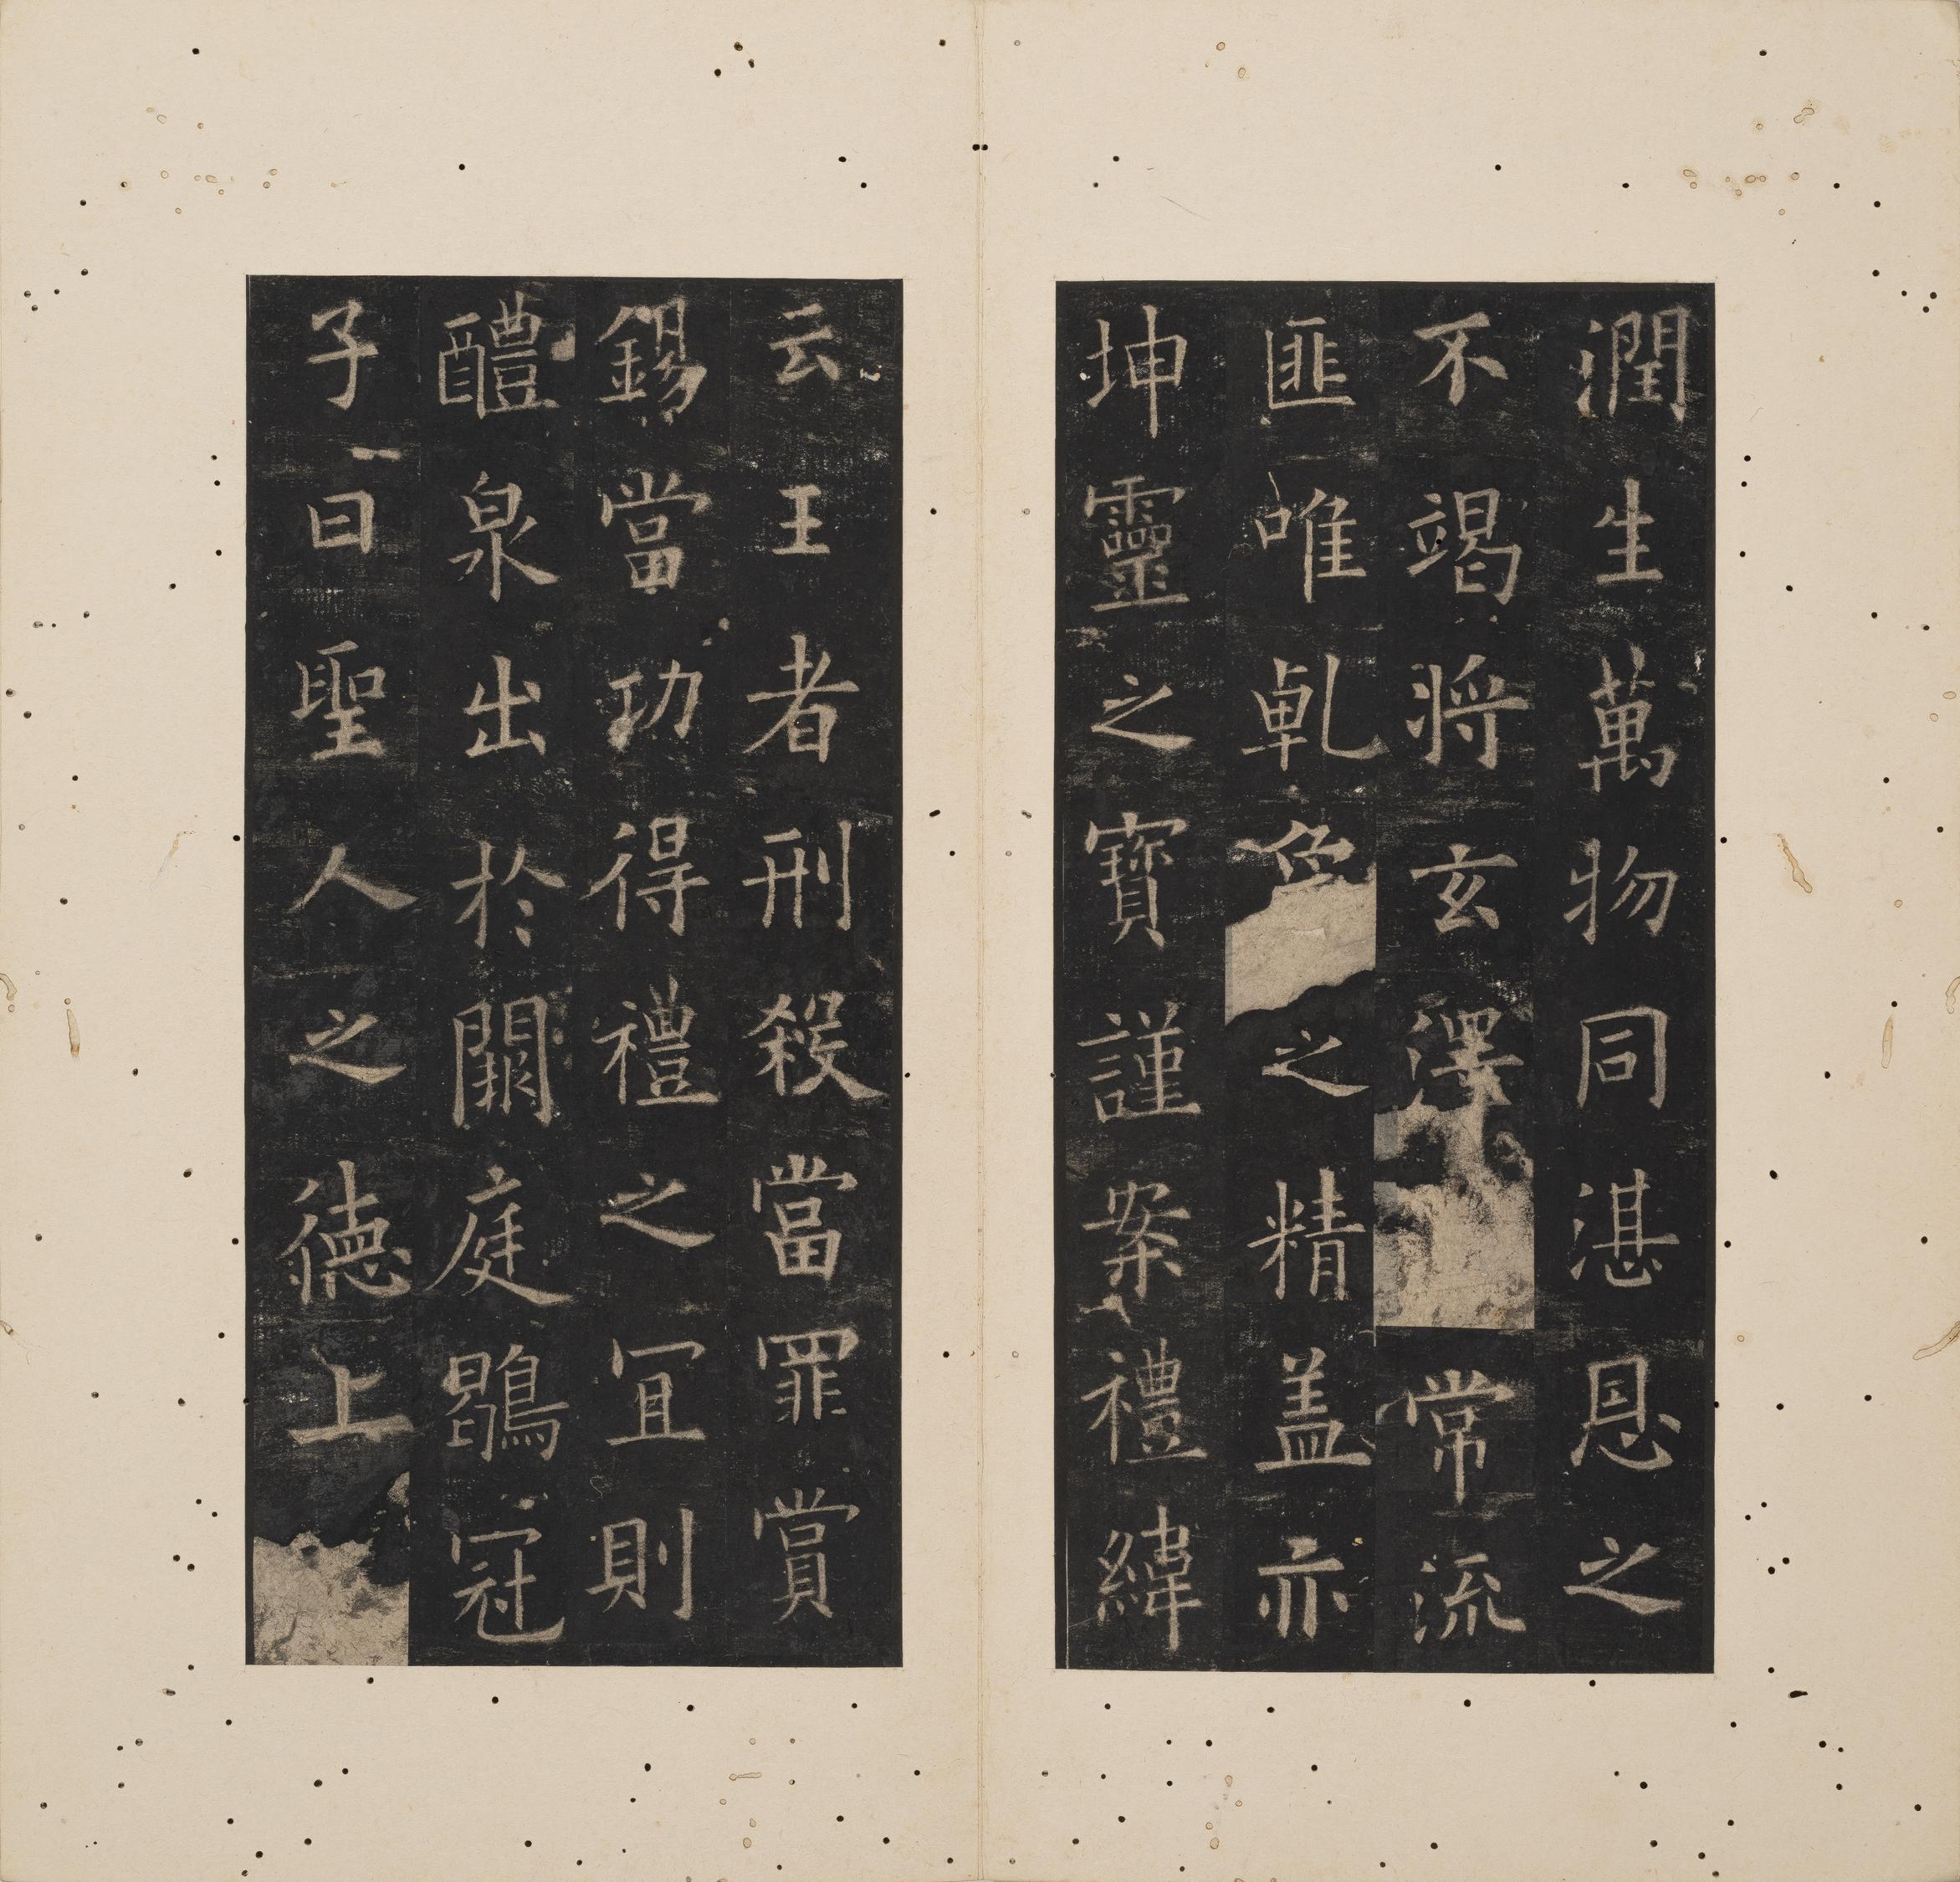 潤生萬物同湛恩之
不竭将玄澤常流
匪唯乹象之精盖亦
坤靈之寶謹案禮緯
云王者刑殺當罪賞
錫當功得禮之冝則
醴泉出於闕庭鶡冠
子曰聖人之德上